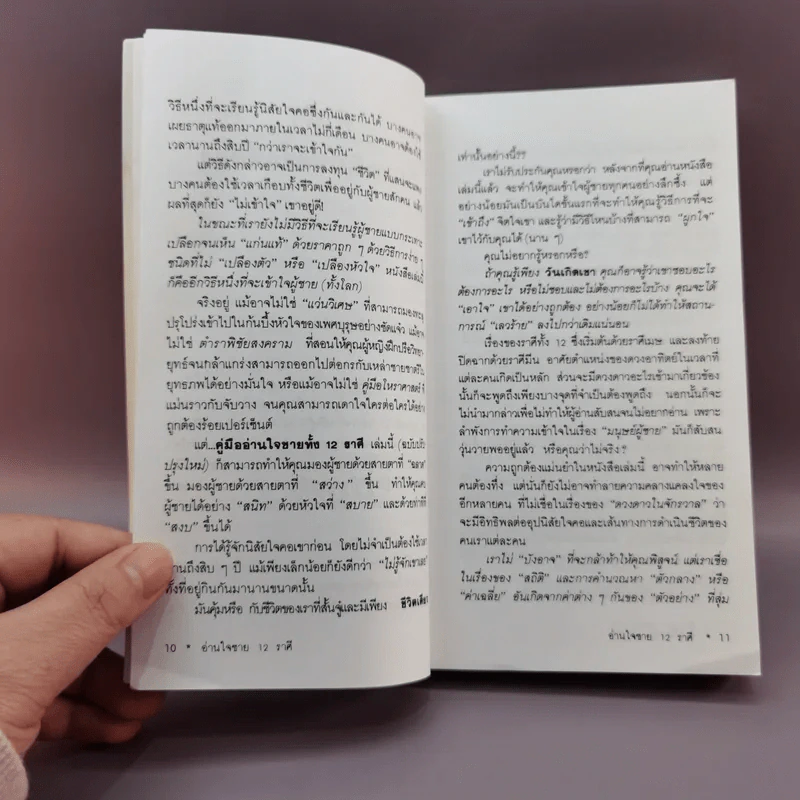 วิธีหนึ่งที่จะเรียนรู้นิสัยใจคอซึ่งกันและกันได้ บางคนอาจ
เผยธาตุแท้ออกมาภายในเวลาไม่กี่เดือน บางคนอาจต้องใช้
เวลานานถึงสิบปี “กว่าเราจะเข้าใจกัน”
แต่วิธีดังกล่าวอาจเป็นการลงทุน “ชีวิต” ที่แสนจะแพง
บางคนต้องใช้เวลาเกือบทั้งชีวิตเพื่ออยู่กับผู้ชายสักคน แล้ว
ผลที่สุดก็ยัง “ไม่เข้าใจ” เขาอยู่ดี!
ในขณะที่เรายังไม่มีวิธีที่จะเรียนรู้ผู้ชายแบบกระเทาะ
เปลือกจนเห็น “แก่นแท้” ด้วยราคาถูก ๆ ด้วยวิธีการง่าย ๆ
ชนิดที่ไม่ “เปลืองตัว” หรือ “เปลืองหัวใจ” หนังสือเล่มนี้
ก็คืออีกวิธีหนึ่งที่จะเข้าใจผู้ชาย (ทั้งโลก)
จริงอยู่ แม้อาจไม่ใช่ “แว่นวิเศษ” ที่สามารถมอง
ปรุโปร่งเข้าไปในก้นบึ้งหัวใจของเพศบุรุษอย่างชัดแจ้ง แม้อาจ
ไม่ใช่ ตำราพิชัยสงคราม ที่สอนให้คุณผู้หญิงฝึกปรือวิทยา
ยุทธ์จนกล้าแกร่งสามารถออกไปต่อกรกับเหล่าชายชาตรี
ยุทธภพได้อย่างมั่นใจ หรือแม้อาจไม่ใช่ คู่มือโหราศาสตร์ ที่
แม่นราวกับจับวาง จนคุณสามารถเดาใจใครต่อใครได้อย่าง
ถูกต้องร้อยเปอร์เซ็นต์
แต่...คู่มืออ่านใจชายทั้ง 12 ราศี เล่มนี้ (ฉบับปรับ
ปรุงใหม่) ก็สามารถทำให้คุณมองผู้ชายด้วยสายตาที่ “ฉลาด”
ขึ้น มองผู้ชายด้วยสายตาที่ “สว่าง” ขึ้น ทำให้คุณคบ
ผู้ชายได้อย่าง “สนิท” ด้วยหัวใจที่ “สบาย” และด้วยท่าที
“สงบ” ขึ้นได้
การได้รู้จักนิสัยใจคอเขาก่อน โดยไม่จำเป็นต้องใช้เวลา
นานถึงสิบ ๆ ปี แม้เพียงเล็กน้อยก็ยังดีกว่า “ไม่รู้จักเขาเลย”
ทั้งที่อยู่กินกันมานานขนาดนั้น
มันคุ้มหรือ กับชีวิตของเราที่สั้นจู๋และมีเพียง ชีวิตเดียว
10 * อ่านใจชาย 12 ราศี
เท่านั้นอย่างนี้??
เราไม่รับประกันคุณหรอกว่า หลังจากที่คุณอ่านหนังสือ
เล่มนี้แล้ว จะทำให้คุณเข้าใจผู้ชายทุกคนอย่างลึกซึ้ง แต่
อย่างน้อยมันเป็นบันไดขั้นแรกที่จะทำให้คุณรู้วิธีการที่จะ
“เข้าถึง” จิตใจเขา และรู้ว่ามีวิธีไหนบ้างที่สามารถ “ผูกใจ”
เขาไว้กับคุณได้ (นาน ๆ)
คุณไม่อยากรู้หรอกหรือ?
ถ้าคุณรู้เพียง วันเกิดเขา คุณก็อาจรู้ว่าเขาชอบอะไร
ต้องการอะไร หรือไม่ชอบและไม่ต้องการอะไรบ้าง คุณจะได้
“เอาใจ” เขาได้อย่างถูกต้อง อย่างน้อยก็ไม่ได้ทำให้สถาน-
การณ์ “เลวร้าย” ลงไปกว่าเดิมแน่นอน
เรื่องของราศีทั้ง 12 ซึ่งเริ่มต้นด้วยราศีเมษ และลงท้าย
ปิดฉากด้วยราศีมีน อาศัยตำแหน่งของดวงอาทิตย์ในเวลาที่
แต่ละคนเกิดเป็นหลัก ส่วนจะมีดวงดาวอะไรเข้ามาเกี่ยวข้อง
นั้นก็จะพูดถึงเพียงบางจุดที่จำเป็นต้องพูดถึง นอกนั้นก็จะ
ไม่นำมากล่าวเพื่อไม่ทำให้ผู้อ่านสับสนจนไม่อยากอ่าน เพราะ
ลำพังการทำความเข้าใจในเรื่อง “มนุษย์ผู้ชาย” มันก็สับสน
วุ่นวายพออยู่แล้ว หรือคุณว่าไม่จริง?
ความถูกต้องแม่นยำในหนังสือเล่มนี้ อาจทำให้หลาย
คนต้องทึ่ง แต่นั่นก็ยังไม่อาจทำลายความคลางแคลงใจของ
อีกหลายคน ที่ไม่เชื่อในเรื่องของ “ดวงดาวในจักรวาล” ว่า
จะมีอิทธิพลต่ออุปนิสัยใจคอและเส้นทางการดำเนินชีวิตของ
คนเราแต่ละคน
เราไม่ “บังอาจ” ที่จะกล้าท้าให้คุณพิสูจน์ แต่เราเชื่อ
ในเรื่องของ “สถิติ” และการคำนวณหา “ตัวกลาง” หรือ
“ค่าเฉลี่ย” อันเกิดจากค่าต่าง ๆ กันของ “ตัวอย่าง” ที่สุ่ม
อ่านใจชาย 12 ราศี * 11